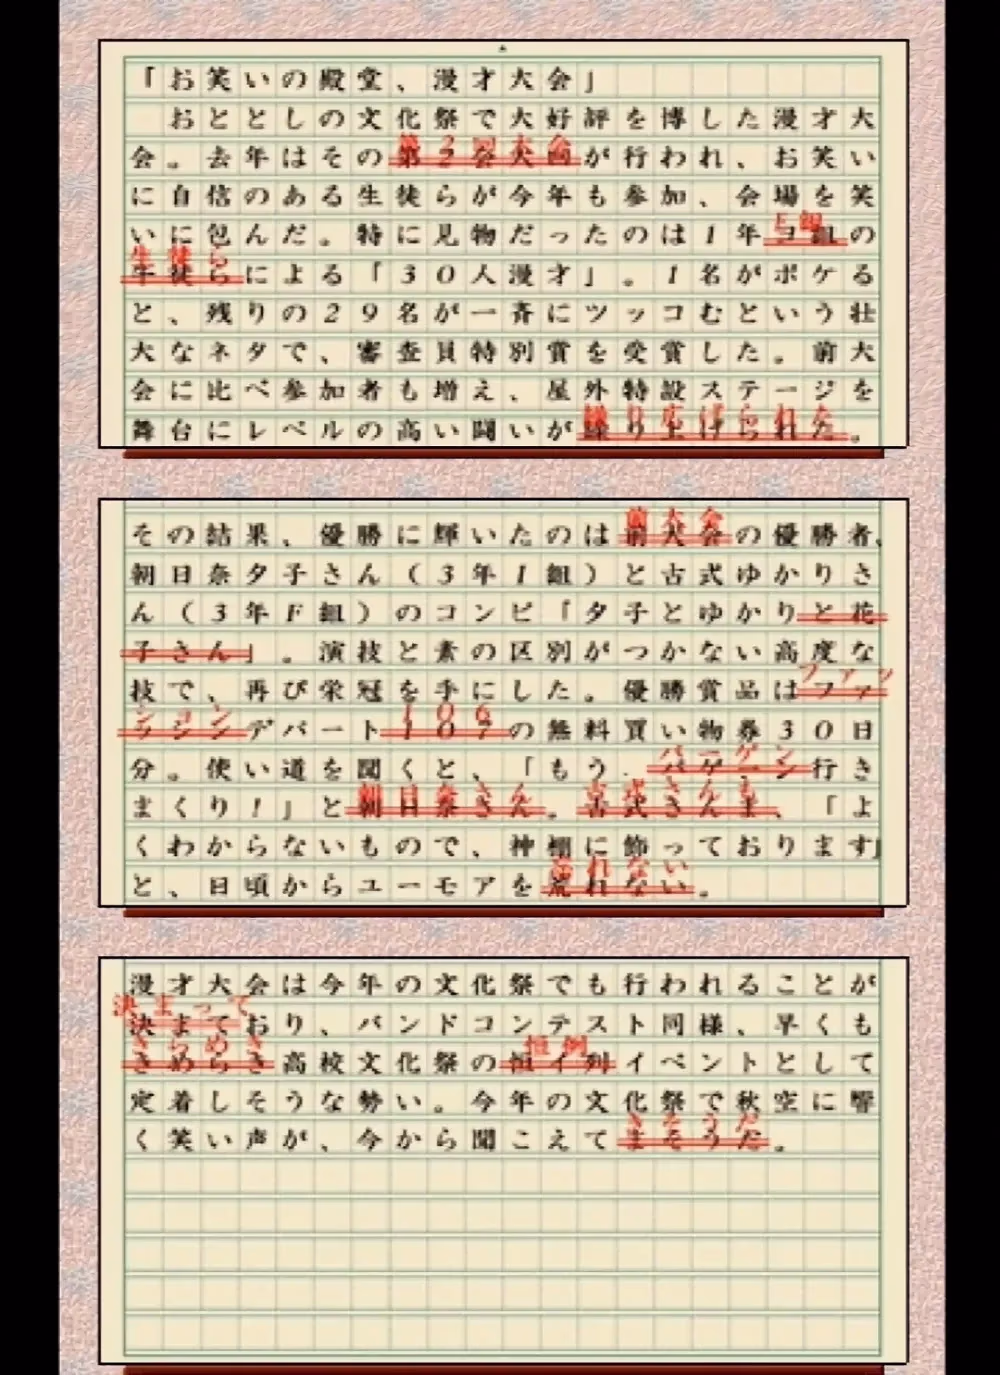 「お笑いの殿堂、漫才大会」
おととしの文化祭で大好評を博した漫才大
第2回大会
会。去年はその第2会大回が行われ、お笑い
に自信のある生徒らが今年も参加、会場を笑
E組
いに包んだ。特に見物だったのは1年ヨ組の
生徒ら
牛徒らによる「30人漫才」。1名がボケる
と、残りの29名が一斉にツッコむという壮
大なネタで、審査員特別賞を受賞した。前大
会に比べ参加者も増え、屋外特設ステージを
繰り広げられた
舞台にレベルの高い闘いが繰り上げられた。
前大会
その結果、優勝に輝いたのは前犬会の優勝者、
朝日奈夕子さん(3年I組)と古式ゆかりさ
ん(3年F組)のコンビ「夕子とゆかりと花
子さん」。演技と素の区別がつかない高度な
ファッ
技で、再び栄冠を手にした。優勝賞品はファ
ション 106
デパート107の無料買い物券30日
バーゲン
分。使い道を聞くと、「もう、バゲーン行き
朝日奈さん 古式さんも
まくり!」と朝日祭さん。古式さんま、「よ
くわからないもので、神棚に飾っております」
忘れない
と、日頃からユーモアを荒れない。
漫才大会は今年の文化祭でも行われることが
決まって
決まており、バンドコンテスト同様、早くも
きらめき 恒例
きめらき高校文化祭の恒イ列イベントとして
定着しそうな勢い。今年の文化祭で秋空に響
きそうだ
く笑い声が、今から聞こえてまそうだ。